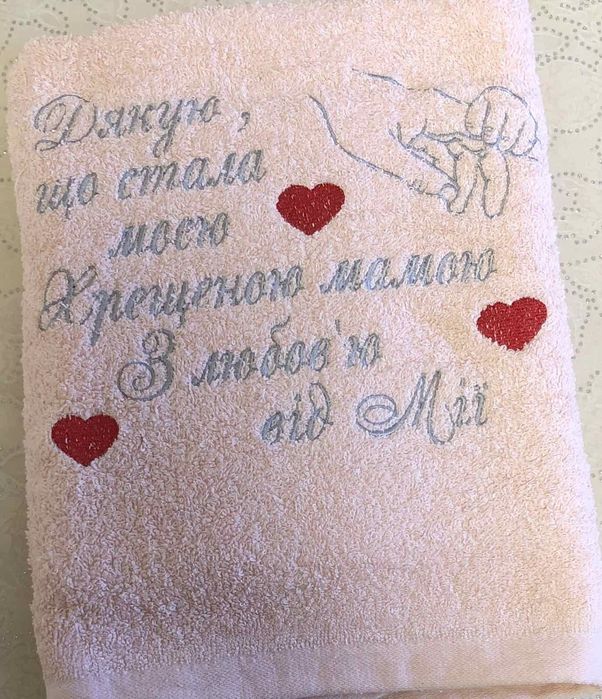 Дякую,
що стала
моєю
Хрещеною мамою
З любов'ю
від Мії